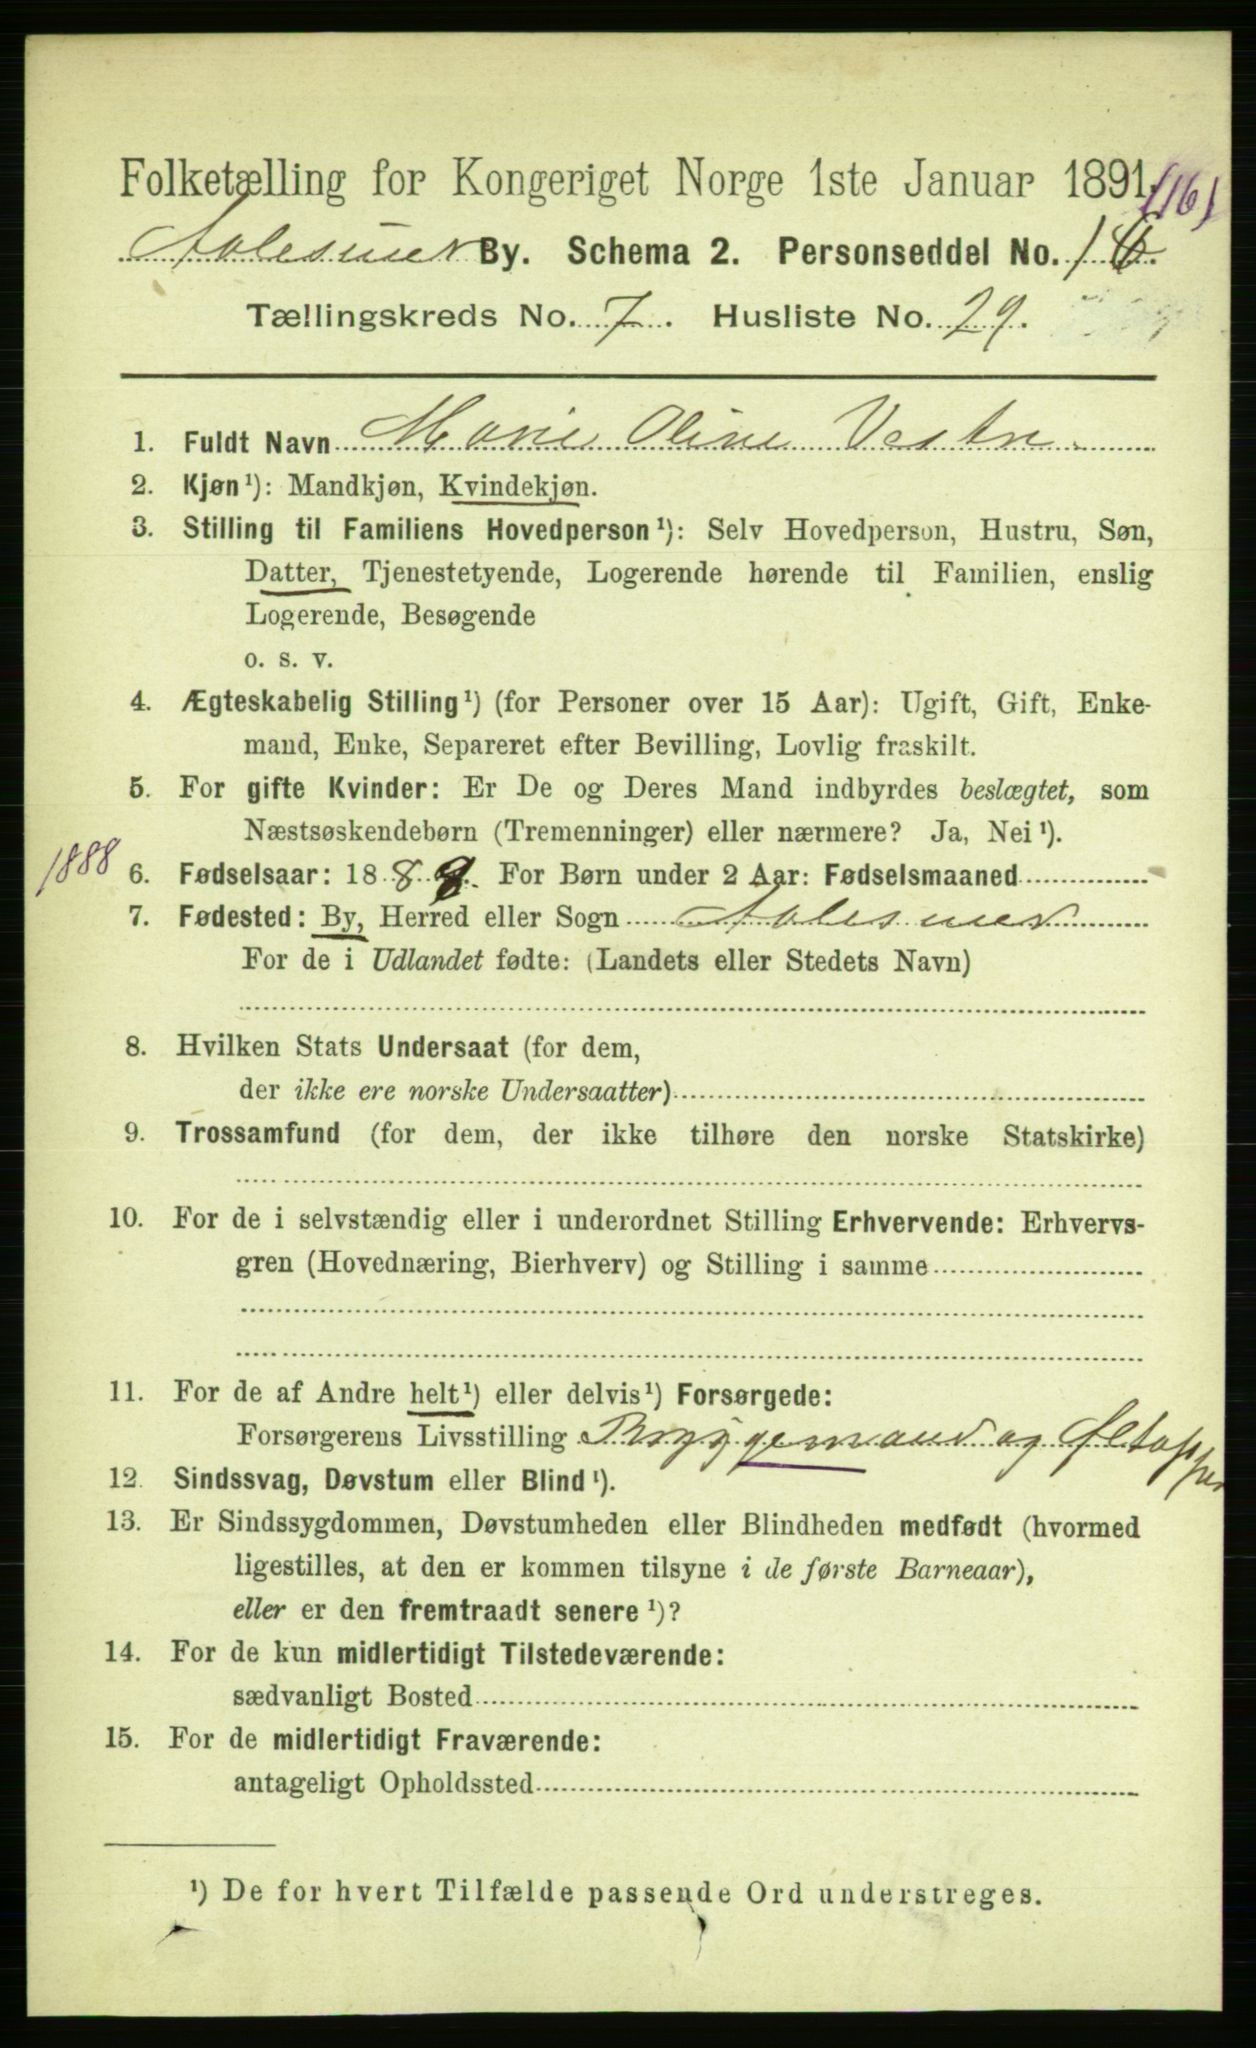 Folketælling for Kongeriget Norge 1ste Januar 1891.
(16)
Aalesund By. Schema 2. Personseddel No. 16.
Tællingskreds No. 7. Husliste No. 29.
1. Fuldt Navn Marie Oline Vestre
2. Kjøn¹): Mandkjøn, Kvindekjøn.
3. Stilling til Familiens Hovedperson¹): Selv Hovedperson, Hustru, Søn,
Datter, Tjenestetyende, Logerende hørende til Familien, enslig
Logerende, Besøgende
o. s. v.
4. Ægteskabelig Stilling¹) (for Personer over 15 Aar): Ugift, Gift, Enke-
mand, Enke, Separeret efter Bevilling, Lovlig fraskilt.
5. For gifte Kvinder: Er De og Deres Mand indbyrdes beslægtet, som
Næstsøskendebørn (Tremenninger) eller nærmere? Ja, Nei¹).
1888
6. Fødselsaar: 188 8. For Børn under 2 Aar: Fødselsmaaned
7. Fødested: By, Herred eller Sogn Aalesund
For de i Udlandet fødte: (Landets eller Stedets Navn)
8. Hvilken Stats Undersaat (for dem,
der ikke ere norske Undersaatter)
9. Trossamfund (for dem, der ikke tilhøre den norske Statskirke)
10. For de i selvstændig eller i underordnet Stilling Erhvervende: Erhvervs-
gren (Hovednæring, Bierhverv) og Stilling i samme
11. For de af Andre helt¹) eller delvis¹) Forsørgede:
Forsørgerens Livsstilling Bryggemand og Øltapper
12. Sindssvag, Døvstum eller Blind¹).
13. Er Sindssygdommen, Døvstumheden eller Blindheden medfødt (hvormed
ligestilles, at den er kommen tilsyne i de første Barneaar),
eller er den fremtraadt senere¹)?
14. For de kun midlertidigt Tilstedeværende:
sædvanligt Bosted
15. For de midlertidigt Fraværende:
antageligt Opholdssted
¹) De for hvert Tilfælde passende Ord understreges.